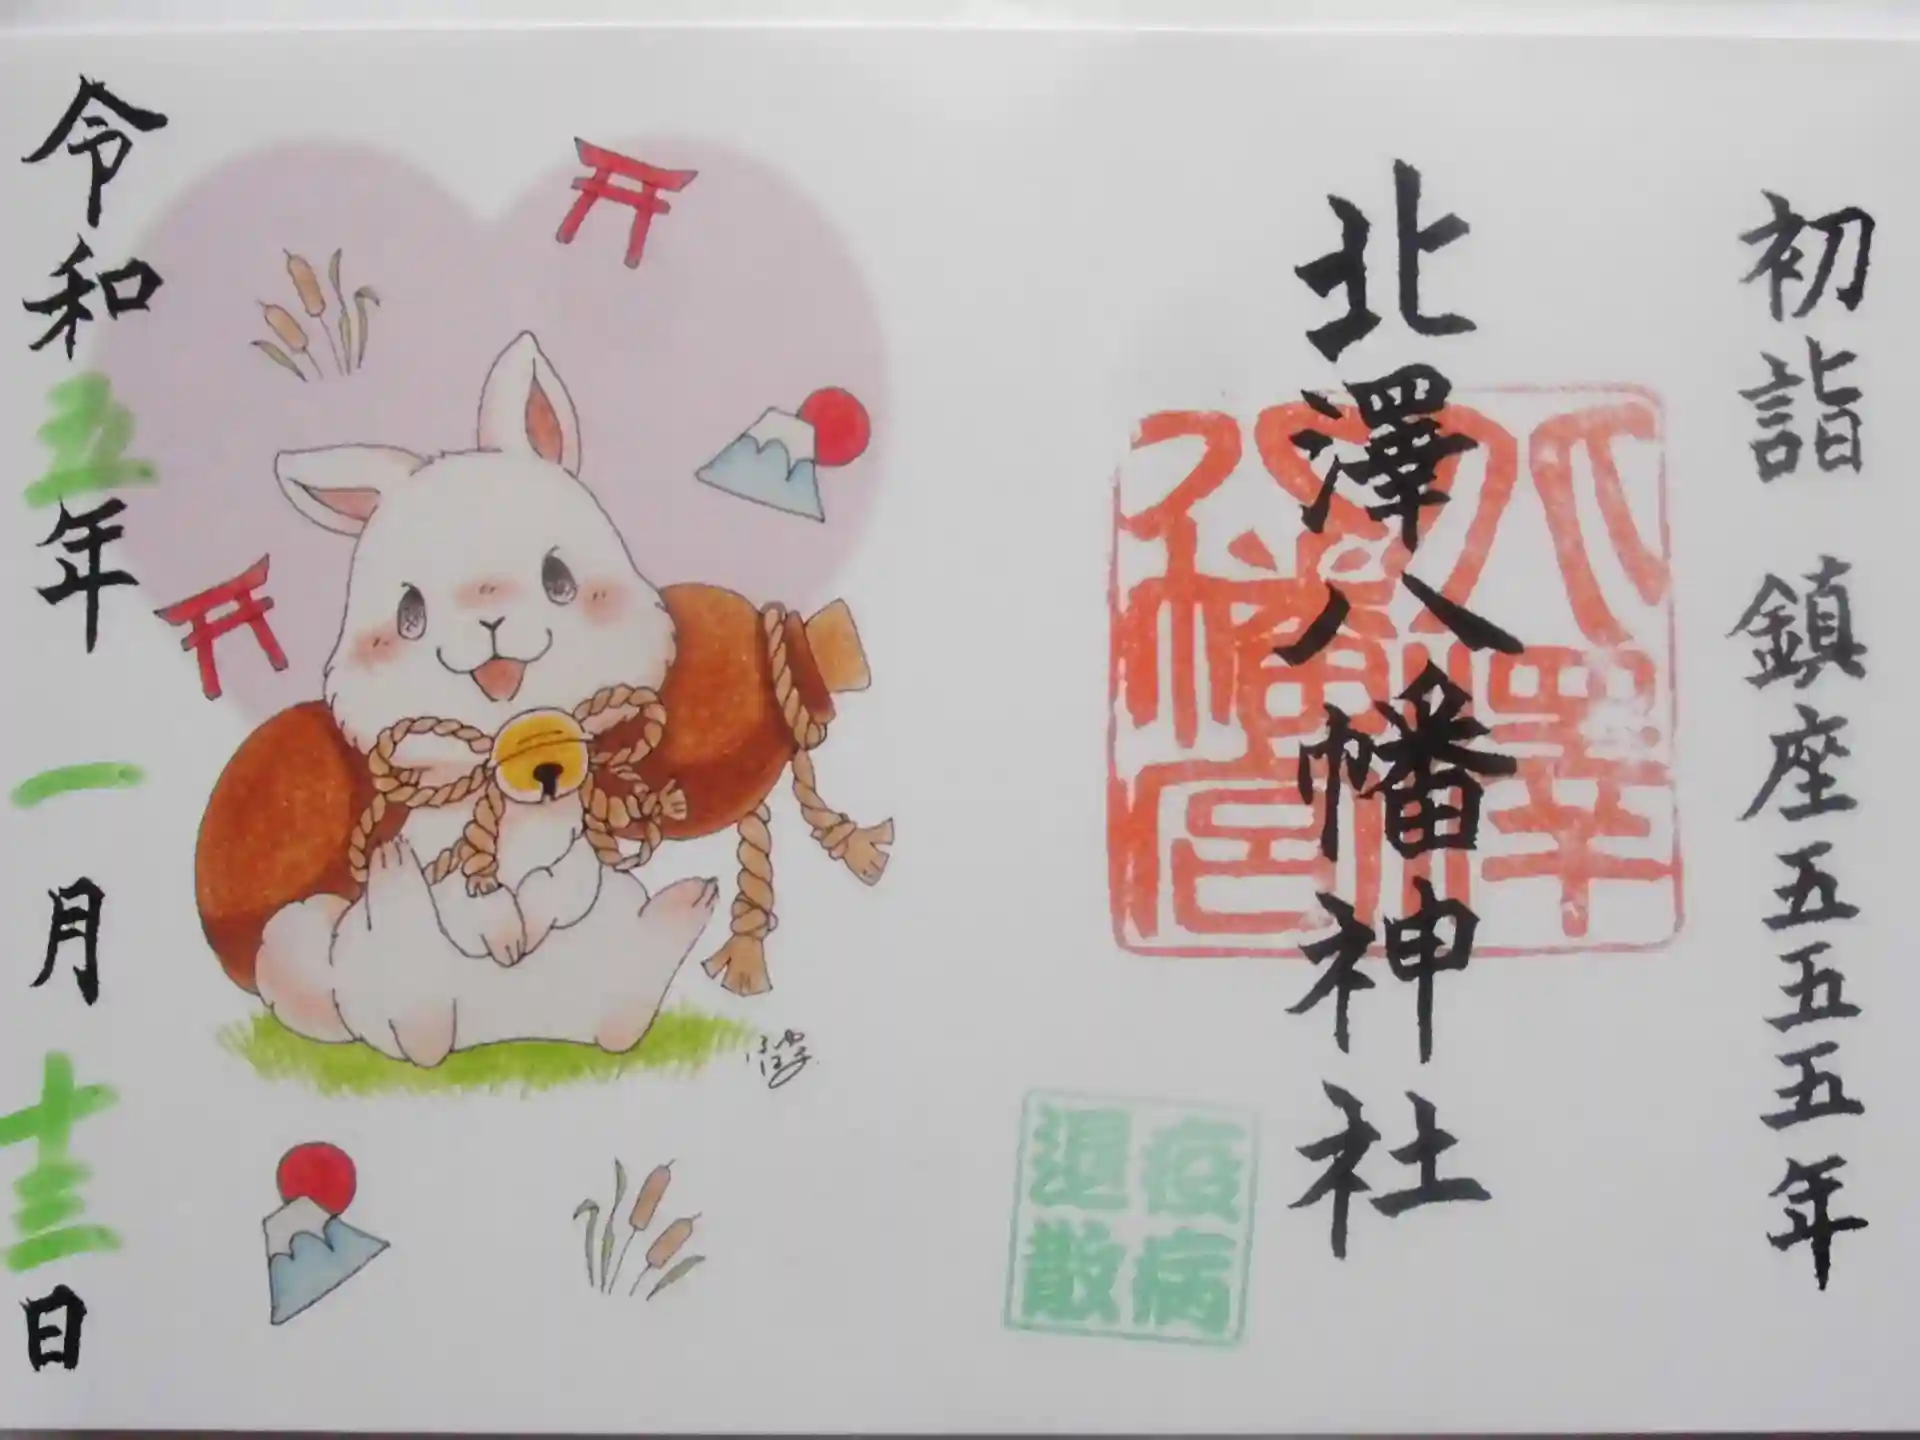 初詣 鎮座五五五年
北澤八幡神社
北澤八幡宮
疫病
退散
令和五年 一月十三日